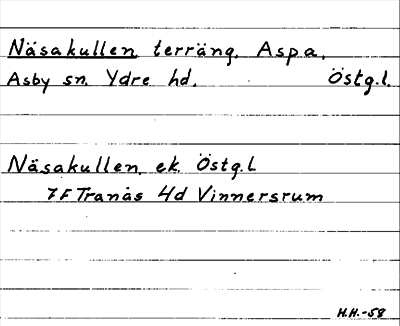 Näsakullen terräng. Aspa.
Asby sn. Ydre hd. Östg.l.
Näsakullen. ek. Östg.l
7F Tranås 4d Vinnersrum
H.H.-58